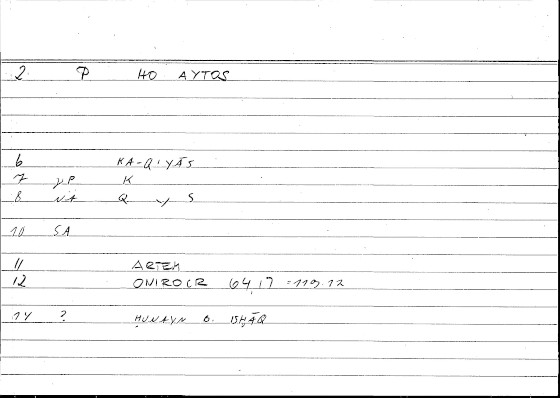 2 P HO AYTOS
6 KA-QIYĀS
7 γP K
8 NA Q γ S
10 SA
11 ARTEM
12 ONIROCR 64,17 = 119.12
14 ? ḤUNAYN B. ISḤĀQ